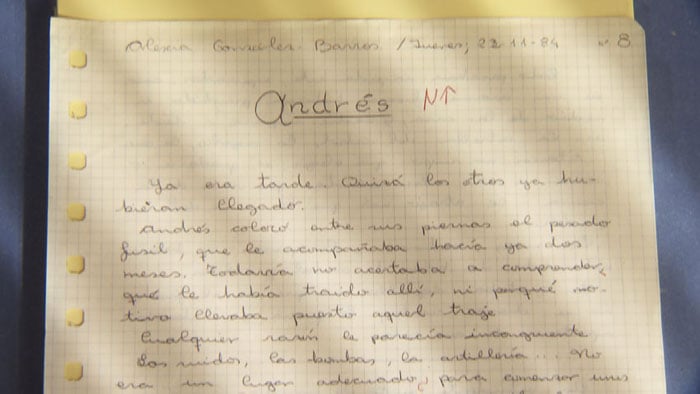 Alexia González-Barros / Jueves, 22-11-84 nº 8
Andrés N↑
Ya era tarde. Quizá los otros ya hu-
bieran llegado.
Andrés colocó entre sus piernas el pesado
fusil, que le acompañaba hacía ya dos
meses. Todavía no acertaba a comprender,
qué le había traido allí, ni porqué mo-
tivo llevaba puesto aquel traje
Cualquier razón le parecía incongruente
Los ruidos, las bombas, la artillería... No
era un lugar adecuado, para comenzar unas